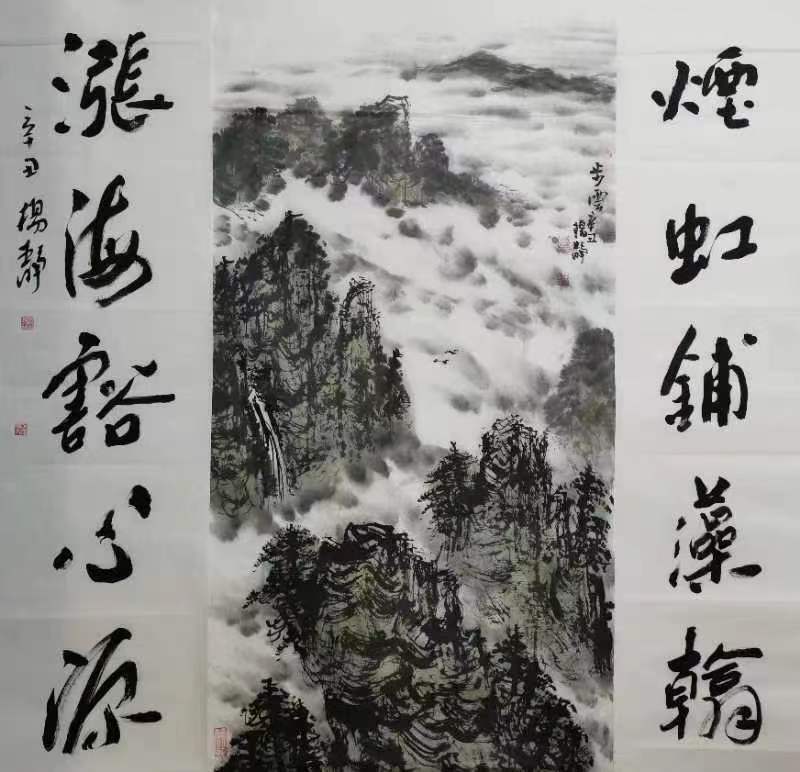 煙虹鋪藻翰
步雲 辛丑
漲海豁心源
辛丑 楊靜